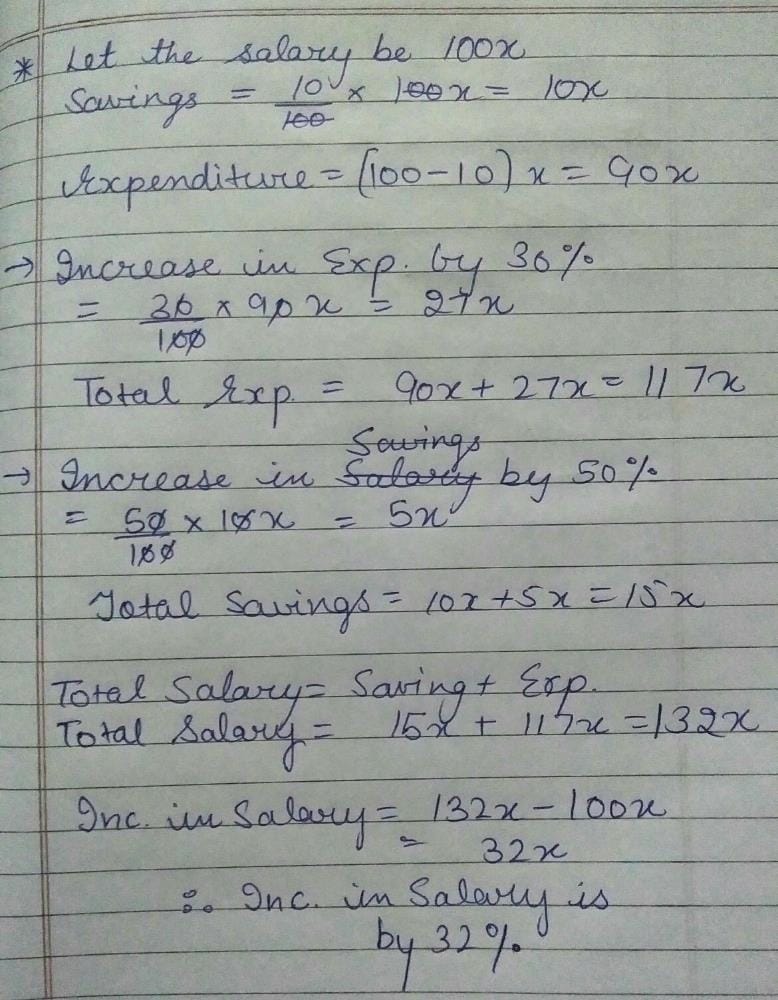 * Let the salary be 100x
Savings = 10/100 × 100x = 10x
Expenditure = (100-10) x = 90x
→ Increase in Exp. by 30%
= 30/100 × 90x = 27x
Total Exp. = 90x + 27x = 117x
Savings
→ Increase in Salary by 50%
= 50/100 × 10x = 5x
Total Savings = 10x + 5x = 15x
Total Salary = Saving + Exp.
Total Salary = 15x + 117x = 132x
Inc. in Salary = 132x - 100x
= 32x
∴ Inc. in Salary is
by 32%.